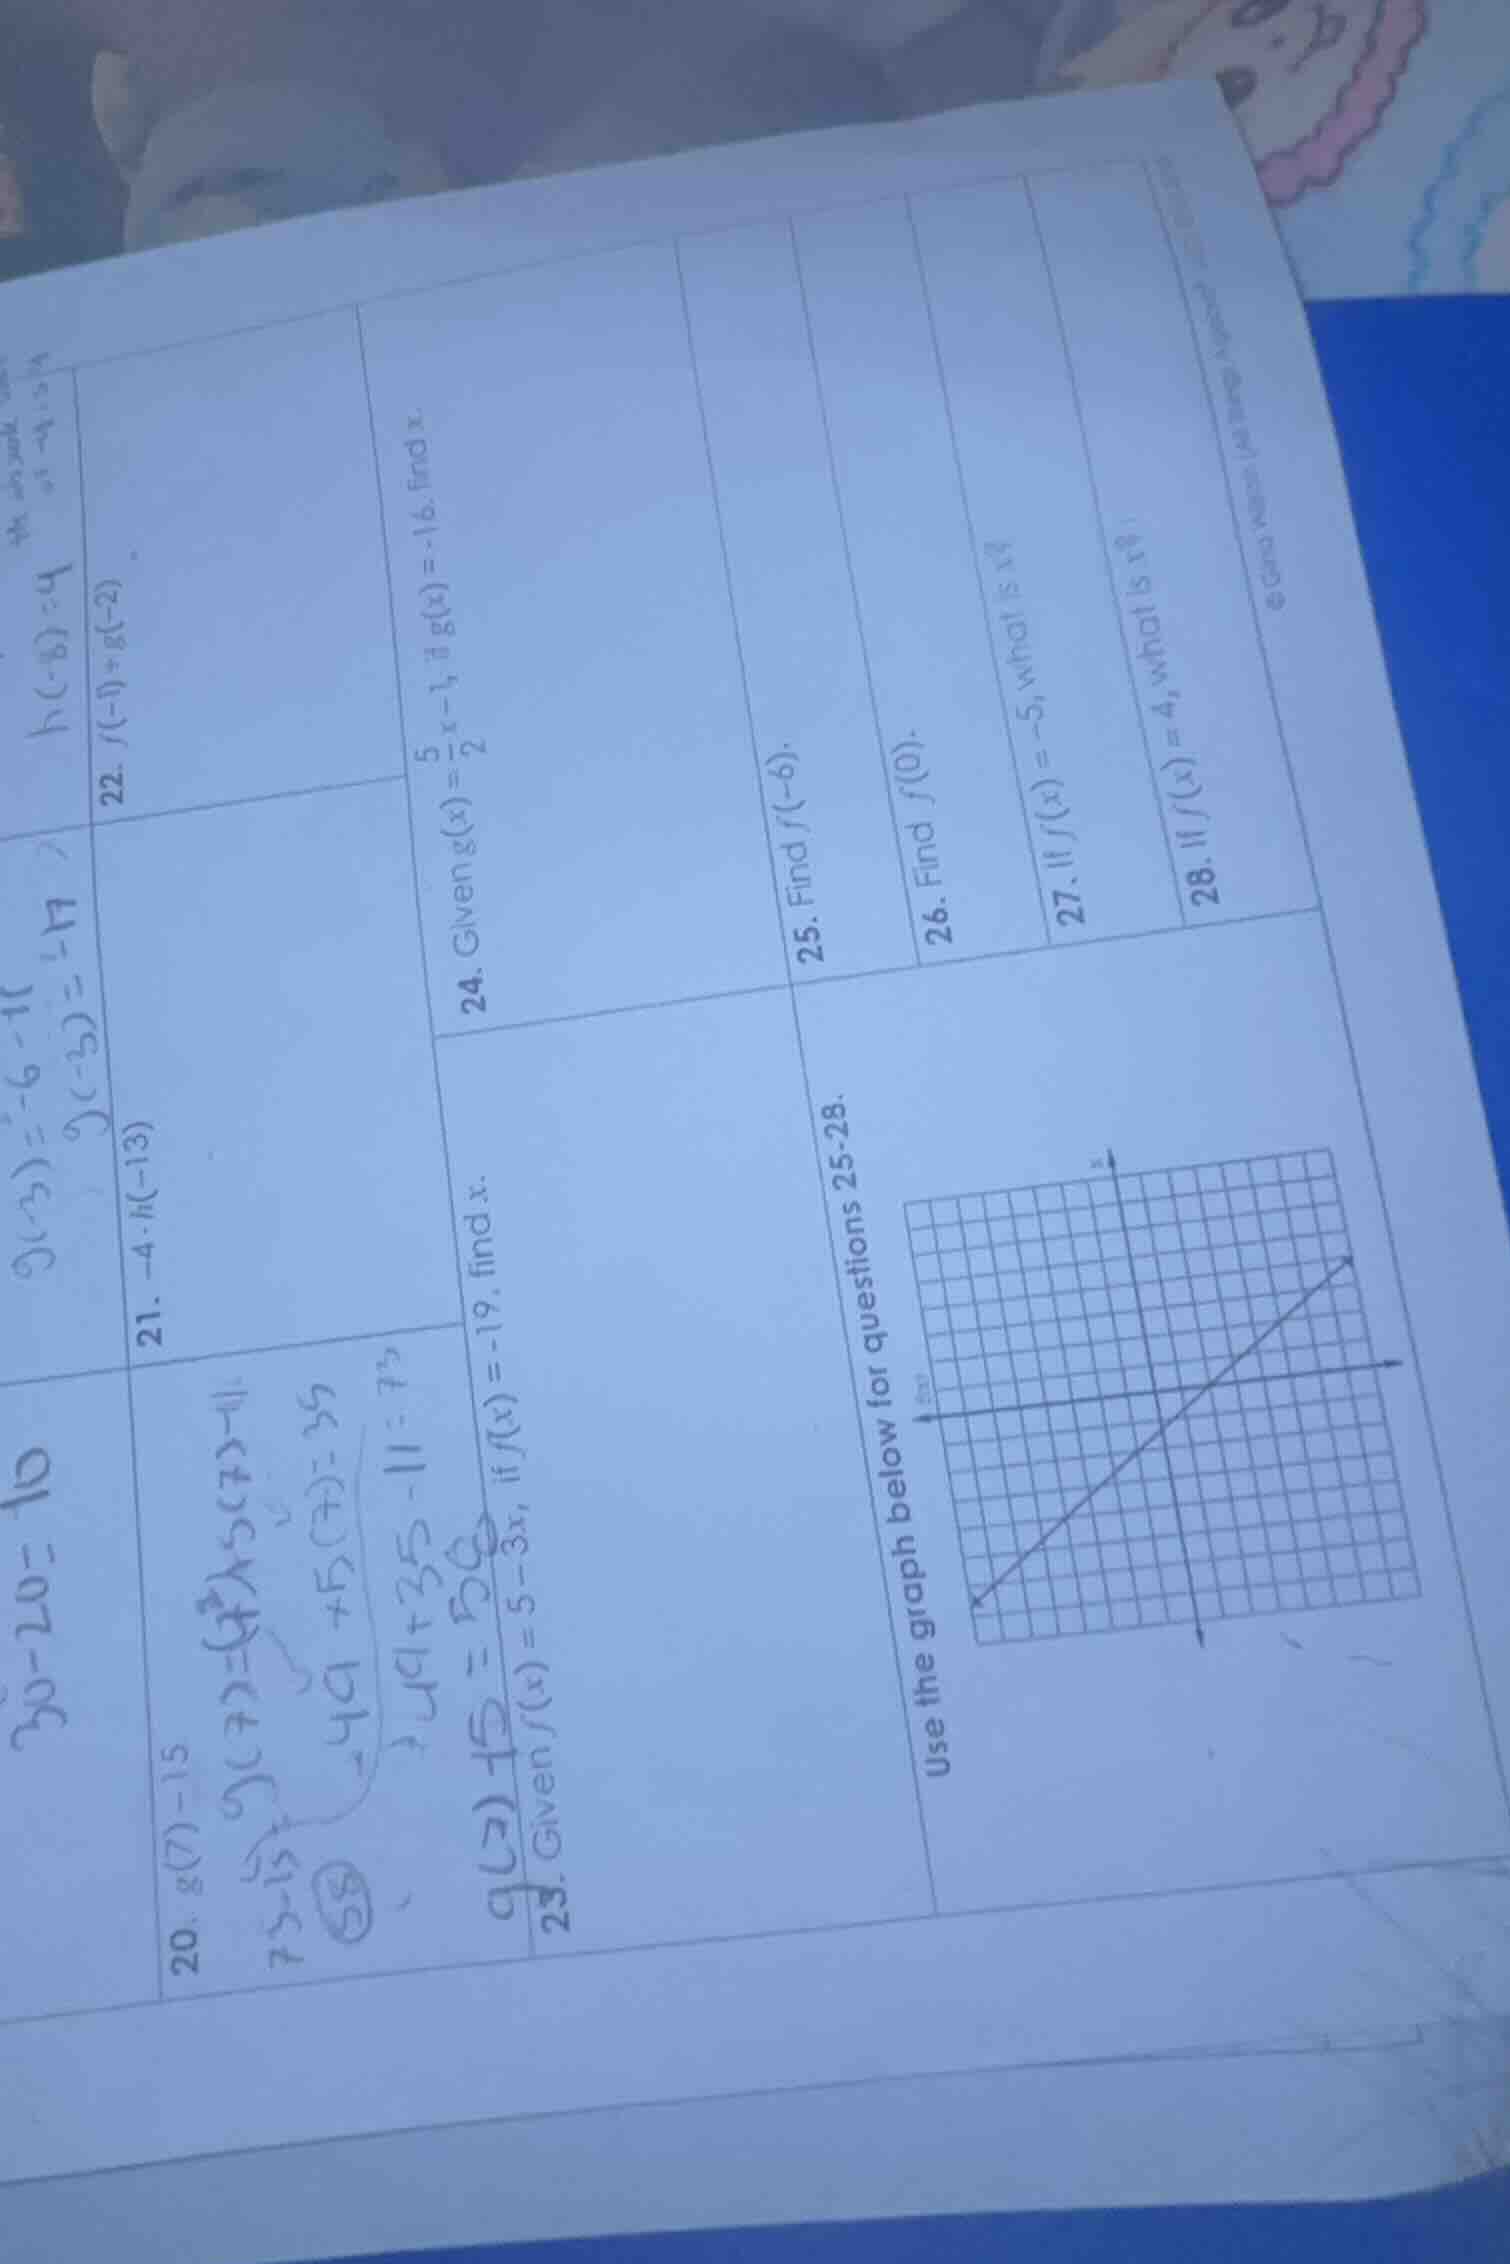 30-20=10
g(-3)=-6-11
g(-3)=-17
h(-8)=4
20. g(7)-15
g(7)=(7²)+5(7)-11
73-15=
58
49+5(7)=35
49+35-11=73
g(7)-15=58
21. -4·h(-13)
22. f(-1)+g(-2)
23. Given f(x)=5-3x, if f(x)=-19, find x.
24. Given g(x)=5/2x-1, if g(x)=-16, find x.
Use the graph below for questions 25-28.
f(x)
x
25. Find f(-6).
26. Find f(0).
27. If f(x)=-5, what is x?
28. If f(x)=4, what is x?
© Gina Wilson (All Things Algebra